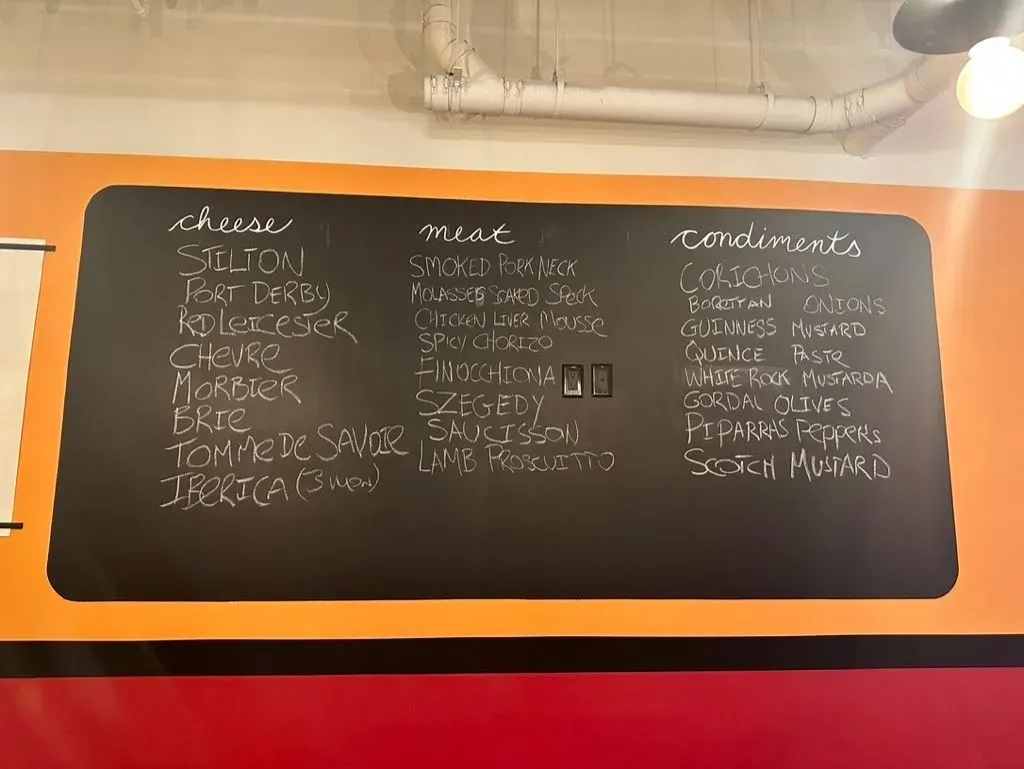 cheese
STILTON
PORT DERBY
RED LEICESTER
CHEVRE
MORBIER
BRIE
TOMME DE SAVOIE
IBERICA (3 MILK)
meat
SMOKED PORK NECK
MOLASSES SOAKED SPECK
CHICKEN LIVER MOUSSE
SPICY CHORIZO
FINOCCHIONA
SZEGEDY
SAUCISSON
LAMB PROSCUITTO
condiments
CORICHONS
ONIONS
GUINNESS MUSTARD
QUINCE PASTE
WHITE ROCK MUSTARDA
GORDAL OLIVES
PIPARRAS PEPPERS
SCOTCH MUSTARD